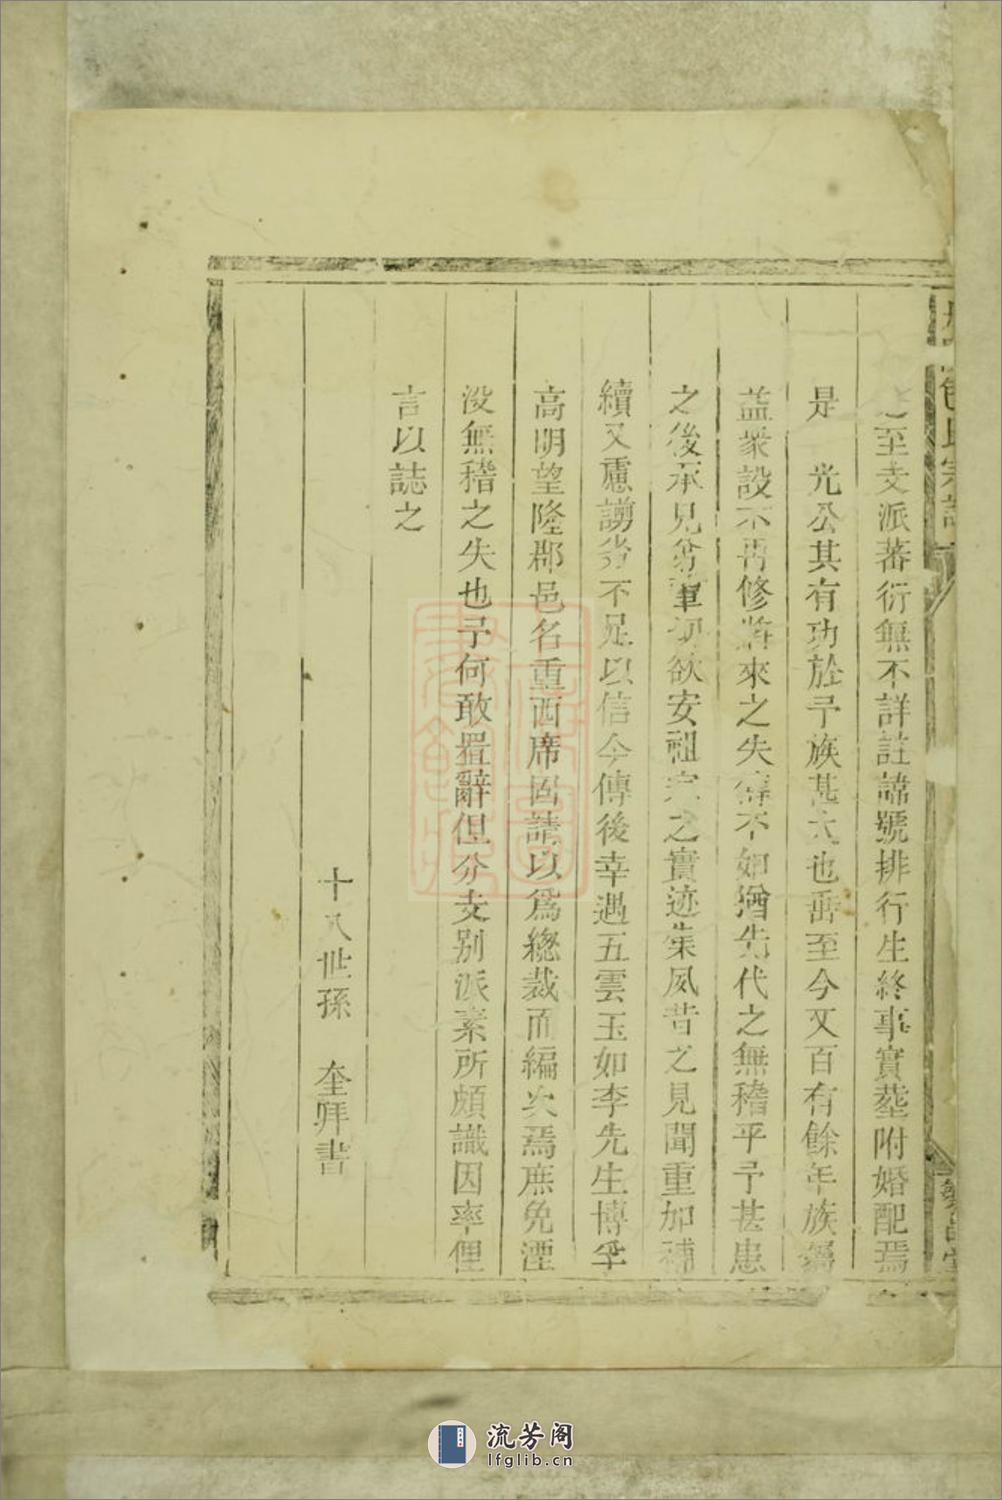 至支派蕃衍無不詳註諱號排行生終事實塟附婚配焉
是　光公其有功於予族甚大也垂至今又百有餘年族
益衆設不再修將來之失得不如猶先代之無稽乎予甚患
之後承兄欲安祖宗之實迹朱夙昔之見聞重加補
續又慮謭劣不足以信今傳後幸遇五雲玉如李先生博學
高明望隆郡邑名重西席固請以爲總裁而編次焉庶免湮
没無稽之失也予何敢置辭但分支别派素所頗識因率俚
言以誌之
十八世孫　奎拜書
氏宗譜
流芳阁
lfglib.cn